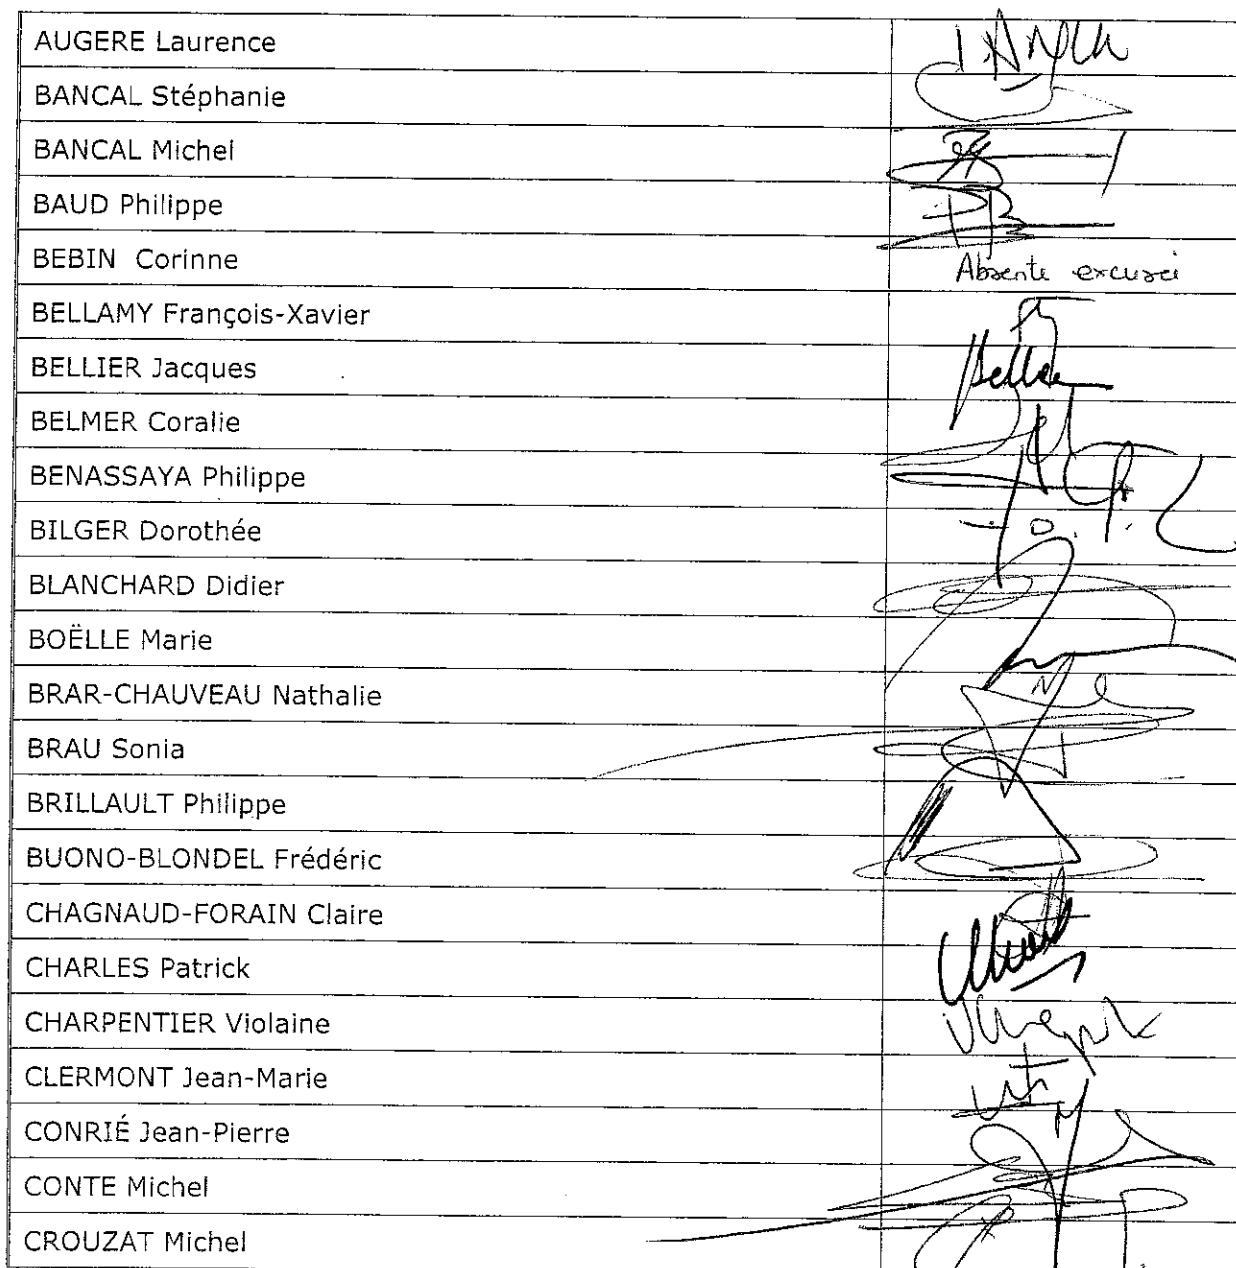 AUGERE Laurence
BANCAL Stéphanie
BANCAL Michel
BAUD Philippe
BEBIN Corinne
Absente excusée
BELLAMY François-Xavier
BELLIER Jacques
BELMER Coralie
BENASSAYA Philippe
BILGER Dorothée
BLANCHARD Didier
BOËLLE Marie
BRAR-CHAUVEAU Nathalie
BRAU Sonia
BRILLAULT Philippe
BUONO-BLONDEL Frédéric
CHAGNAUD-FORAIN Claire
CHARLES Patrick
CHARPENTIER Violaine
CLERMONT Jean-Marie
CONRIÉ Jean-Pierre
CONTE Michel
CROUZAT Michel